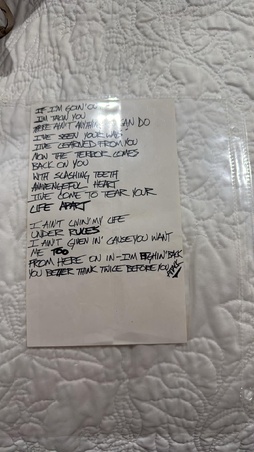 IF I'M GOIN' OU
I'M TAKIN YOU
THERE AIN'T ANYTHIN CAN DO
I'IVE SEEN YOUR WAY
I'IVE LEARNED FROM YOU
NOW THE TERROR COMES
BACK ON YOU
WITH SLASHING TEETH
A VENGEFUL HEART
I'IVE COME TO TEAR YOUR
LIFE APART
I AIN'T LIVIN' MY LIFE
UNDER RULES
I AIN'T GIVEN IN' CAUSE YOU WANT
ME TOO
FROM HERE ON IN - I'M 'BACK
YOU BETTER THINK TWICE BEFORE YOU